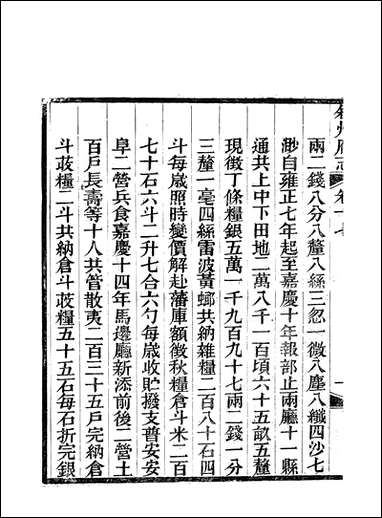 叙州府志 卷十七
兩二錢八分八釐八絲三忽一微八塵八纖四沙七
渺自雍正七年起至嘉慶十年報部止兩廳十一縣
通共上中下田地二萬八千一百頃六十五畝五釐
現徵丁條糧銀五萬一千九百九十七兩二錢一分
三釐一毫四絲雷波黃螂共納雜糧二百八十石四
斗每歲照時變價解赴藩庫額徵秋糧倉斗米二百
七十石六斗二升七合六勺每歲收貯撥支普安安
阜二營兵食嘉慶十四年馬邊廳新添前後二營土
百戶長壽等十人共管散夷二百三十五戶完納倉
斗荍糧二斗共納倉斗荍糧五十五石每石折完銀